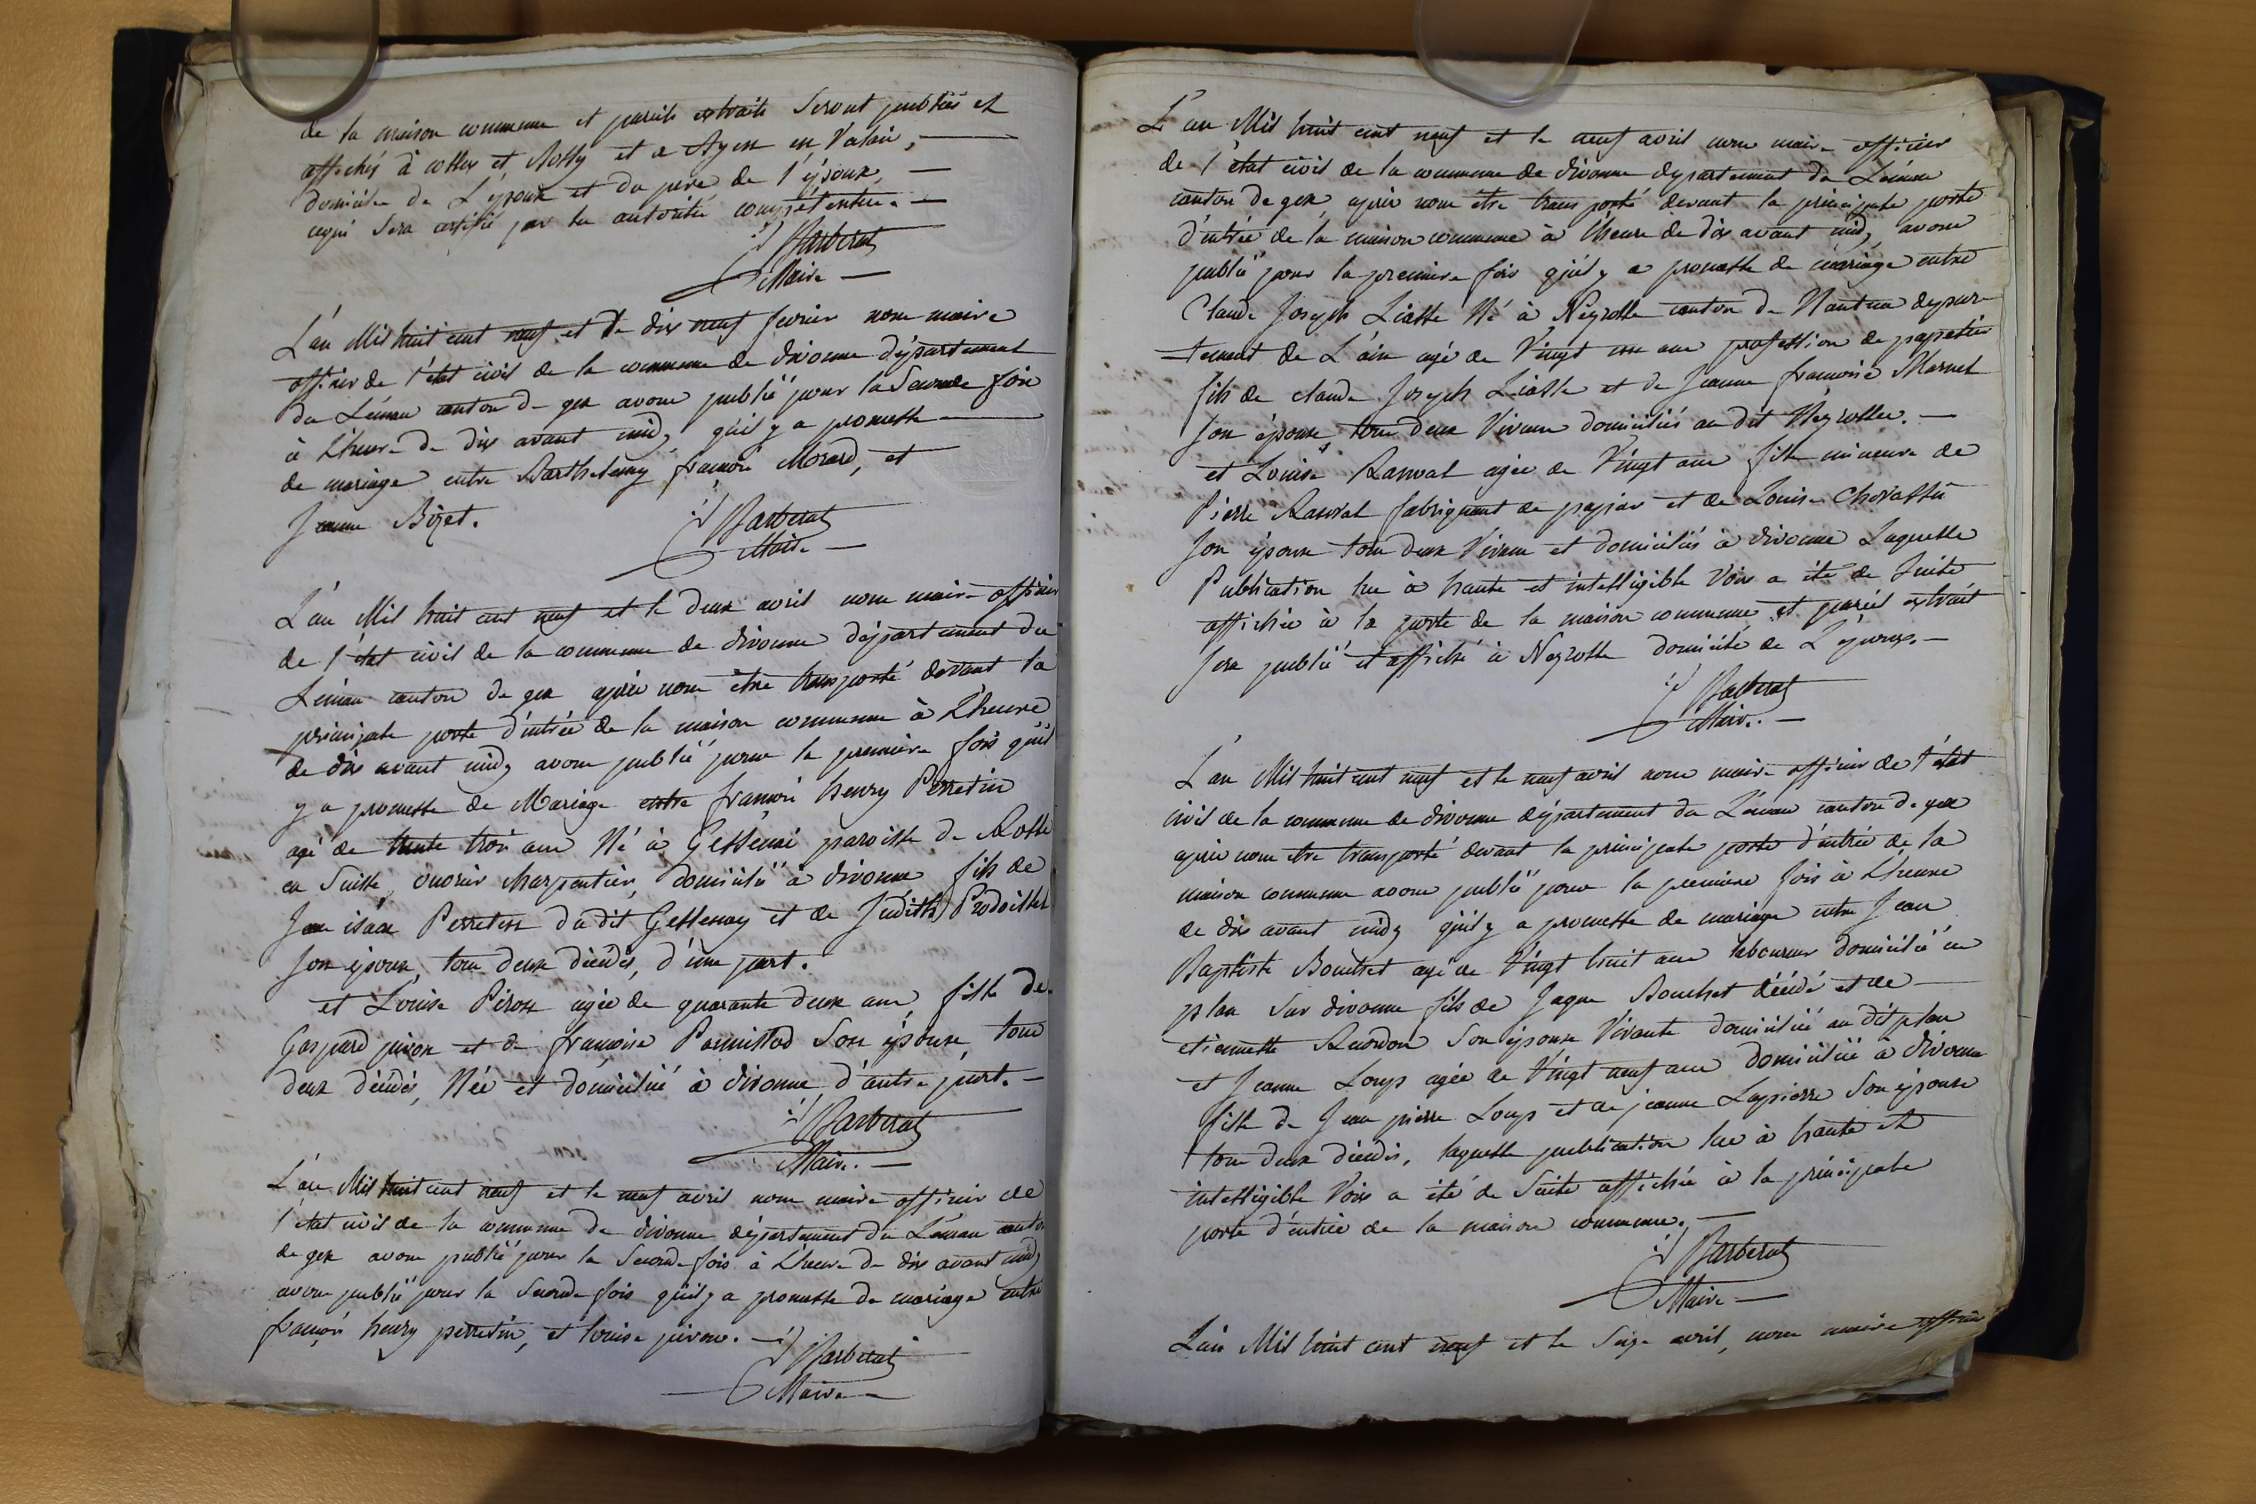 de la maison commune et pareils extraits seront publiés et
affichés à collex et Bossy et a Ayen en Valais,
domiciles de L'épouse et du pere de l'époux,
ce qui sera certifié par les autorités compétentes.
J Barberat
Maire
L'an Mil huit cent neuf et le dix neuf fevrier nous maire
officier de l'état civil de la commune de divonne département
du Léman canton de gex avons publié pour la seconde fois
à L'heure de dix avant midy qu'il y a promesse
de mariage entre Barthelemy françois Morard, et
Jeanne Bizet.
J Barberat
Maire
L'an Mil huit cent neuf et le deux avril nous maire officier
de l'état civil de la commune de divonne département du
Léman canton de gex après nous être transporté devant la
principale porte d'entrée de la maison commune à L'heure
de dix avant midy avons publié pour la première fois qu'il
y a promesse de Mariage entre françois henry Perretin
agé de trente trois ans Né à Gessenai paroisse de
en Suisse, ouvrier charpentier, domicilié à divonne fils de
Jean isaac Perreten du dit Gessenay et de Judith
son épouse, tous deux décédés, d'une part.
et Louise Piron agée de quarante deux ans, fille de
Gaspard piron et de françoise son épouse, tous
deux décédés, Née et domicilié à divonne, d'autre part.
J Barberat
Maire
L'an Mil huit cent neuf et le neuf avril nous maire officier de
l'état civil de la commune de divonne département du Léman canton
de gex avons publié pour la seconde fois à L'heure de dix avant midy
avons publié pour la seconde fois qu'il y a promesse de mariage entre
françois henry perretin, et louise piron.
J Barberat
Maire
L'an Mil huit cent neuf et le neuf avril nous maire officier
de l'état civil de la commune de divonne département du Léman
canton de gex, après nous être transporté devant la principale porte
d'entrée de la maison commune à l'heure de dix avant midy avons
publié pour la premiere fois qu'il y a promesse de mariage entre
Claude Joseph Liasse Né à Neyrolle canton de Nantua depar-
tement de L'ain agé de Vingt un ans profession de papetier
fils de claude Joseph Liasse et de Jeanne françoise Marnet
son épouse, tous deux Vivans domiciliés au dit Neyrolles.
et Louise Ranvat agée de Vingt ans fille mineure de
Pierre Ranvat fabriquant de papier et de Louise
son épouse tous deux Vivans et domiciliés à divonne Laquelle
Publication lue à haute et intelligible Voix a été de suite
affichée à la porte de la maison commune et pareil extrait
sera publié et affiché à Neyrolle domicile de L'époux.
J Barberat
Maire
L'an Mil huit cent neuf et le neuf avril nous maire officier de l'état
civil de la commune de divonne département du Léman canton de gex
après nous etre transporté devant la principale porte d'entrée de la
maison commune avons publié pour la premiere fois à L'heure
de dix avant midy qu'il y a promesse de mariage entre Jean
Baptiste Bouchet agé de Vingt huit ans laboureur domicilié en
plan sur divonne fils de Jaque Bouchet décédé et de
etiennette Reverdon son épouse Vivante domicilié au dit plan
et Jeanne Loup agée de Vingt neuf ans domicilié à divonne
fille de Jean pierre Loup et de jeanne Lapierre son épouse
tous deux décédés, laquelle publication lue à haute et
intelligible Voix a été de Suite affichée à la principale
porte d'entrée de la maison commune.
J Barberat
Maire
L'an Mil huit cent neuf et le Seize avril, nous maire officier